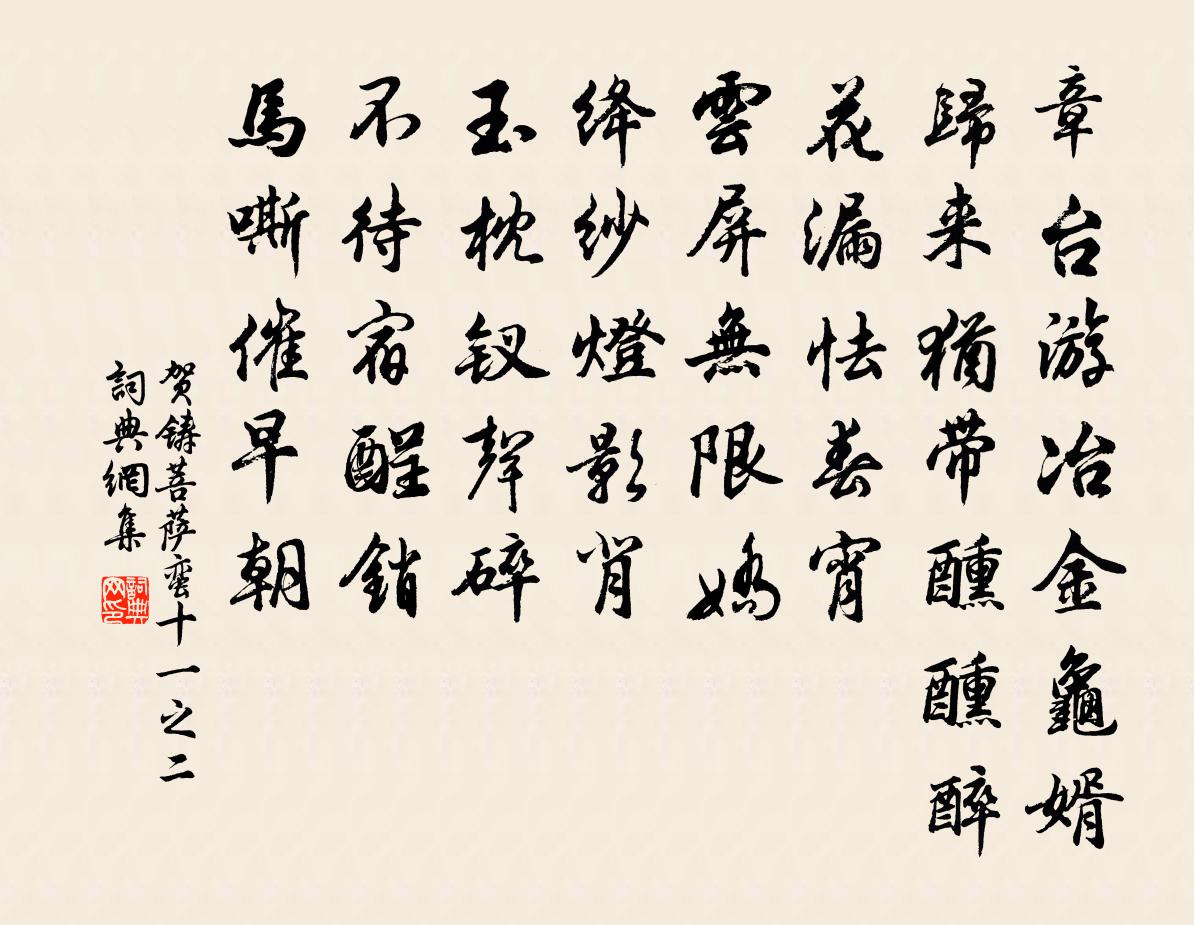 章台游冶金龜婿
歸来猶带醺醺醉
花漏怯春宵
雲屏無限嬌
绛纱燈影背
玉枕钗聲碎
不待宿酲銷
馬嘶催早朝
贺鑄菩萨蛮十一之二
詞典網集
詞典网印